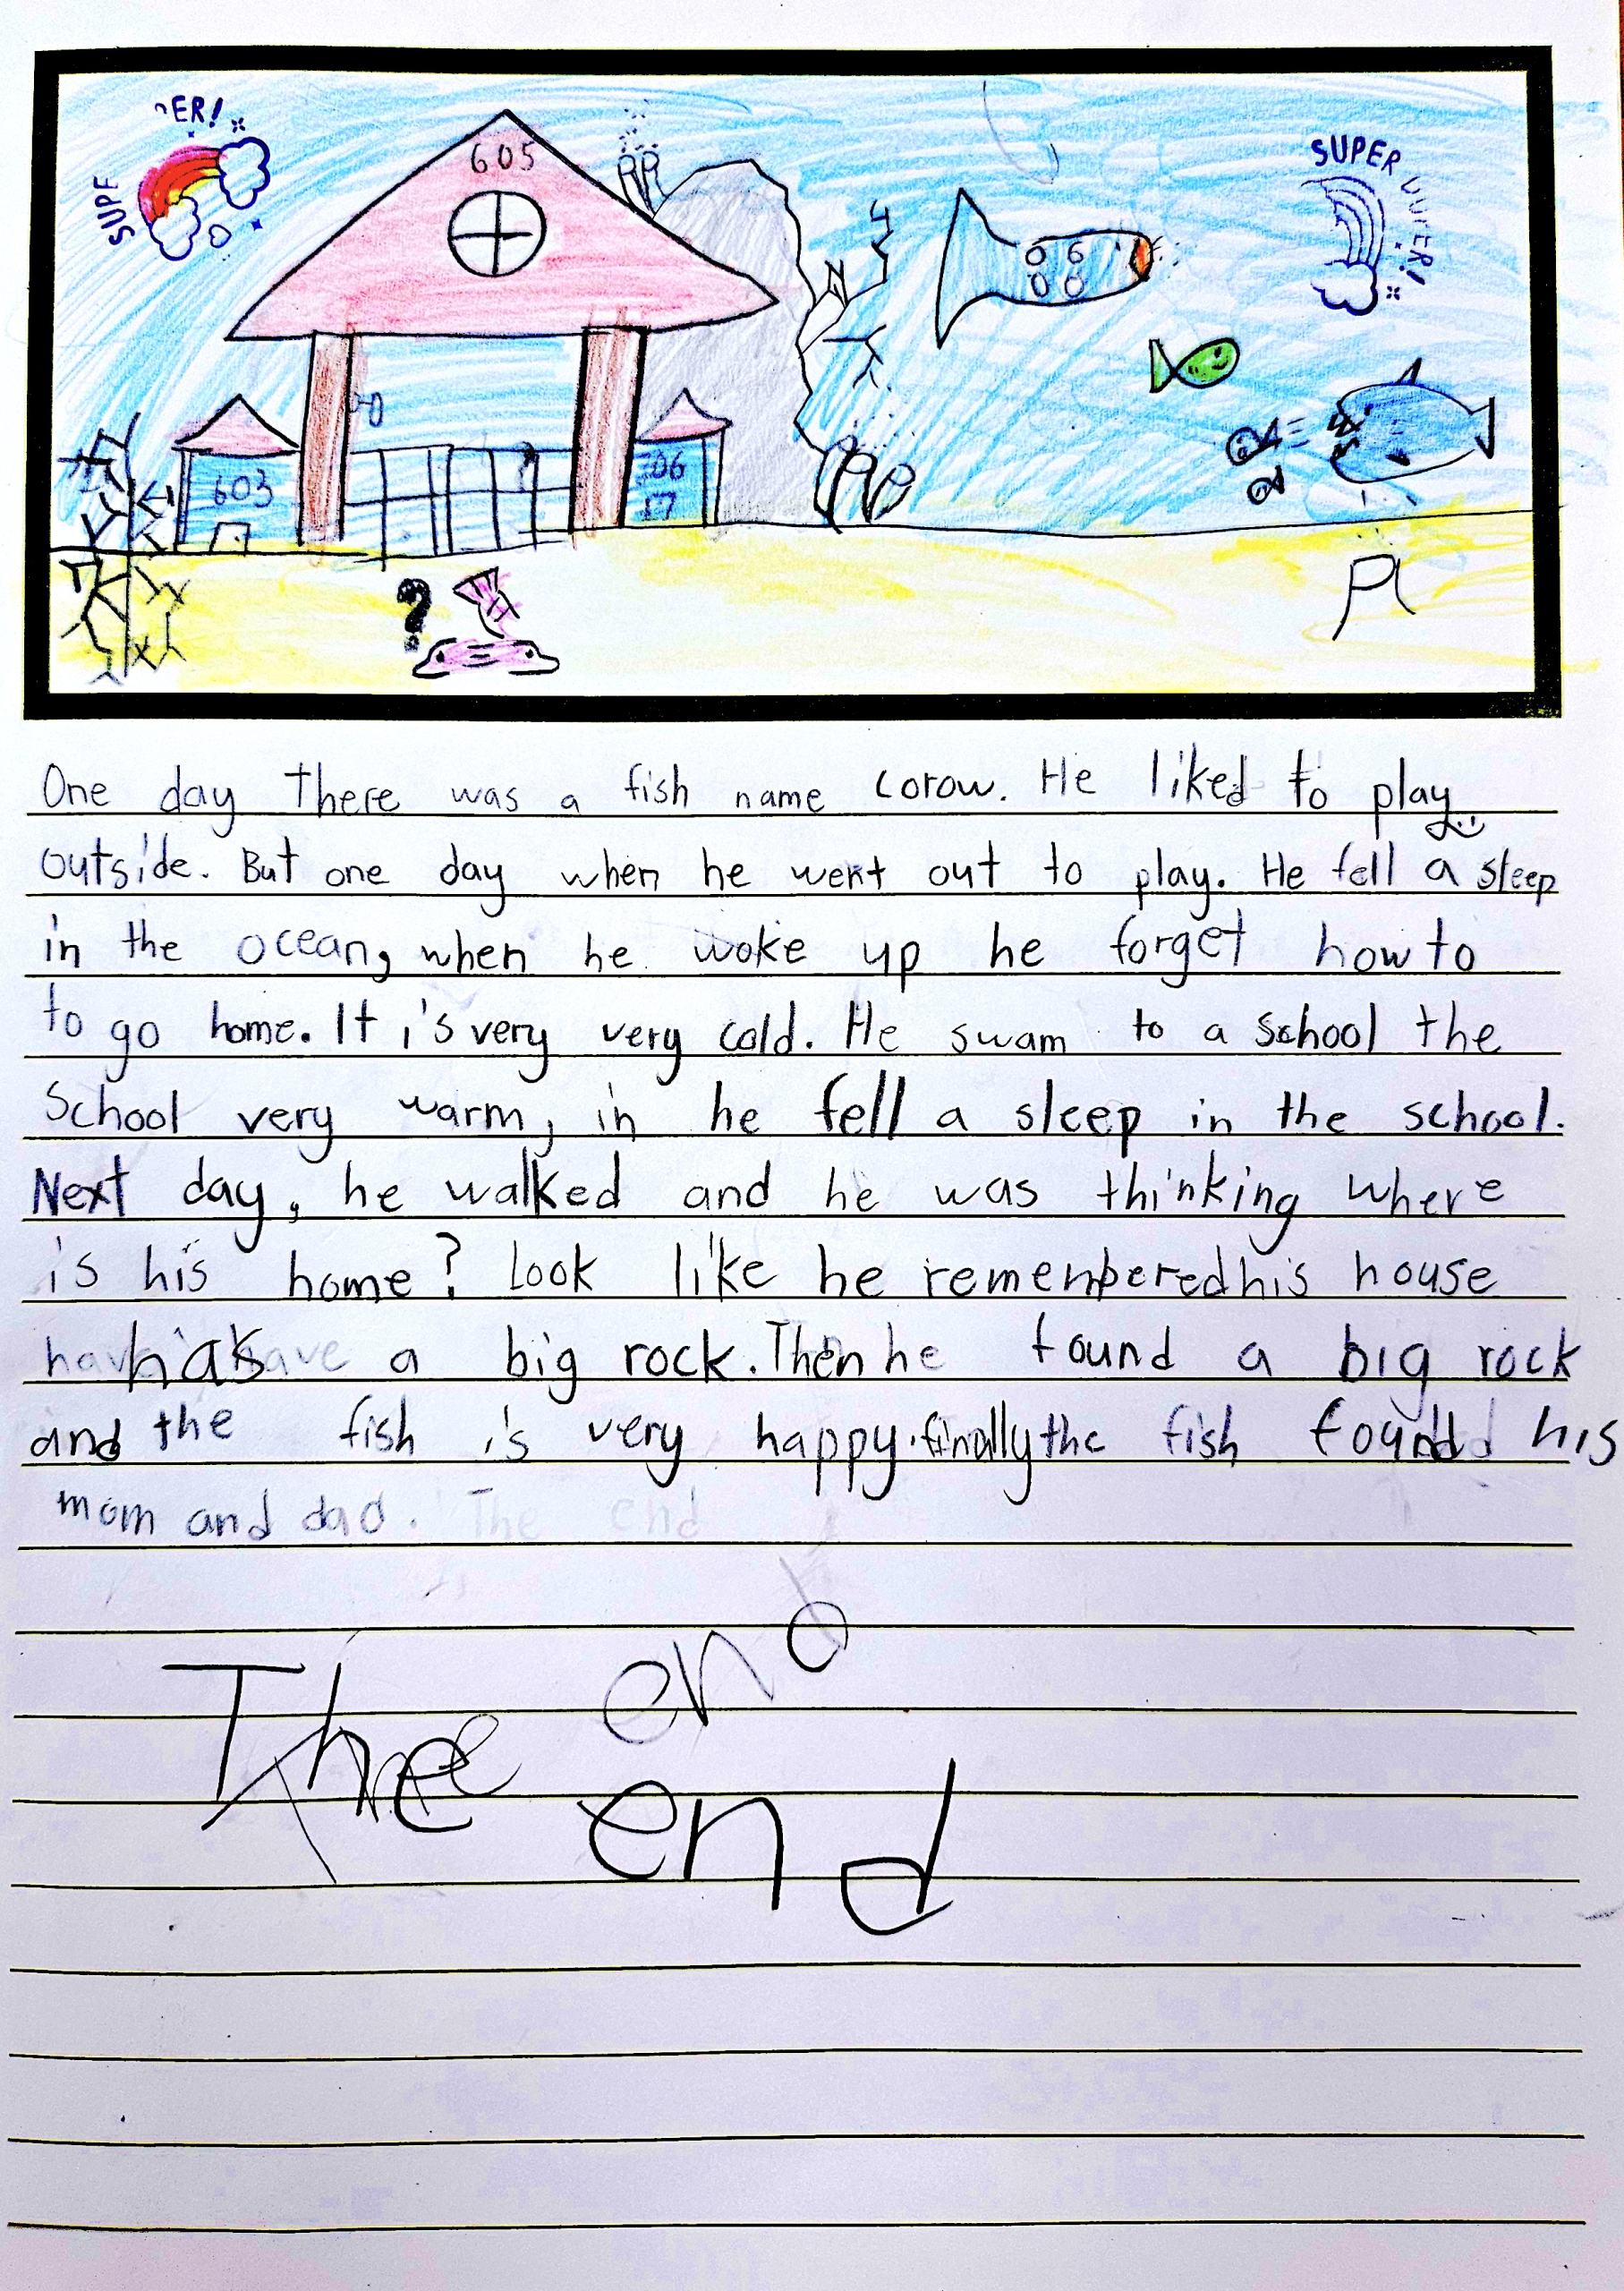 SUPER!
605
SUPER DUPER!
603
06
17
?
One day There was a fish name corow. He liked to play
outside. But one day when he went out to play. He fell a sleep
in the ocean, when he woke up he forget how to
to go home. It i's very very cold. He swam to a school the
School very warm, in he fell a sleep in the school.
Next day, he walked and he was thinking where
is his home? Look like he remenbered his house
has a big rock. Then he found a big rock
and the fish is very happy. finally the fish found his
mom and dad. The end
The end
The end